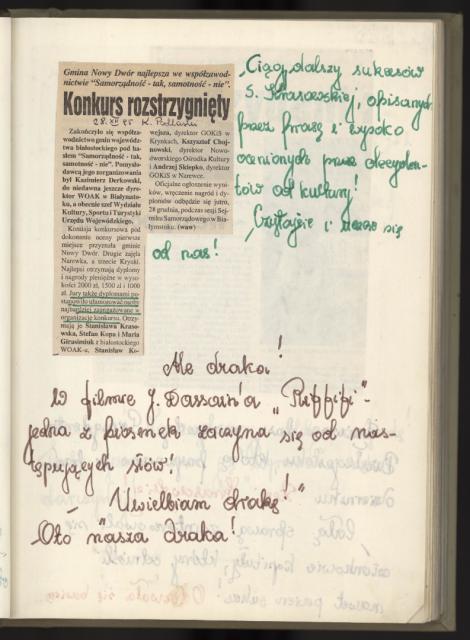 Gmina Nowy Dwór najlepsza we współzawod-
nictwie "Samorządność - tak, samotność - nie".
Konkurs rozstrzygnięty
28. XII 95 K. Podlaski
Zakończyło się współza-
wodnictwo gmin wojewódz-
twa białostockiego pod ha-
słem "Samorządność - tak,
samotność - nie". Pomysło-
dawcą jego organizowania
był Kazimierz Derkowski,
do niedawna jeszcze dyre-
ktor WOAK w Białymsto-
ku, a obecnie szef Wydziału
Kultury, Sportu i Turystyki
Urzędu Wojewódzkiego.
Komisja konkursowa pod
dokonaniu oceny pierwsze
miejsce przyznała gminie
Nowy Dwór. Drugie zajęła
Narewka, a trzecie Krynki.
Najlepsi otrzymają dyplomy
i nagrody pieniężne w wyso-
kości 2000 zł, 1500 zł i 1000
zł. Jury także dyplomami po-
stanowiło uhonorować osoby
najbardziej zaangażowane w
organizację konkursu. Otrzy-
mają je Stanisława Kraso-
wska, Stefan Kopa i Maria
Giruśimiuk z białostockiego
WOAK-u, Stanisław Ko-
wejsza, dyrektor GOKiS w
Krynkach, Krzysztof Choj-
nowski, dyrektor Nowo-
dworskiego Ośrodka Kultury
i Andrzej Derkowski, dyrektor
GOKiS w Narewce.
Oficjalne ogłoszenie wyni-
ków, wręczenie nagród i dy-
plomów odbędzie się jutro,
28 grudnia, podczas sesji Sej-
miku Samorządowego w Bia-
łymstoku. (waw)
Ciąg dalszy sukcesów
S. Krasowskiej, opisanych
przez prasę i wysoko
ocenionych przez decyden-
tów od kultury!
Czytajcie i uczcie się
od nas!
Ale draka!
W filmie J. Dassin'a „Riffifi"-
jedna z piosenek zaczyna się od nas-
tępujących słów!
— Uwielbiam drakę!"
Oto nasza draka!